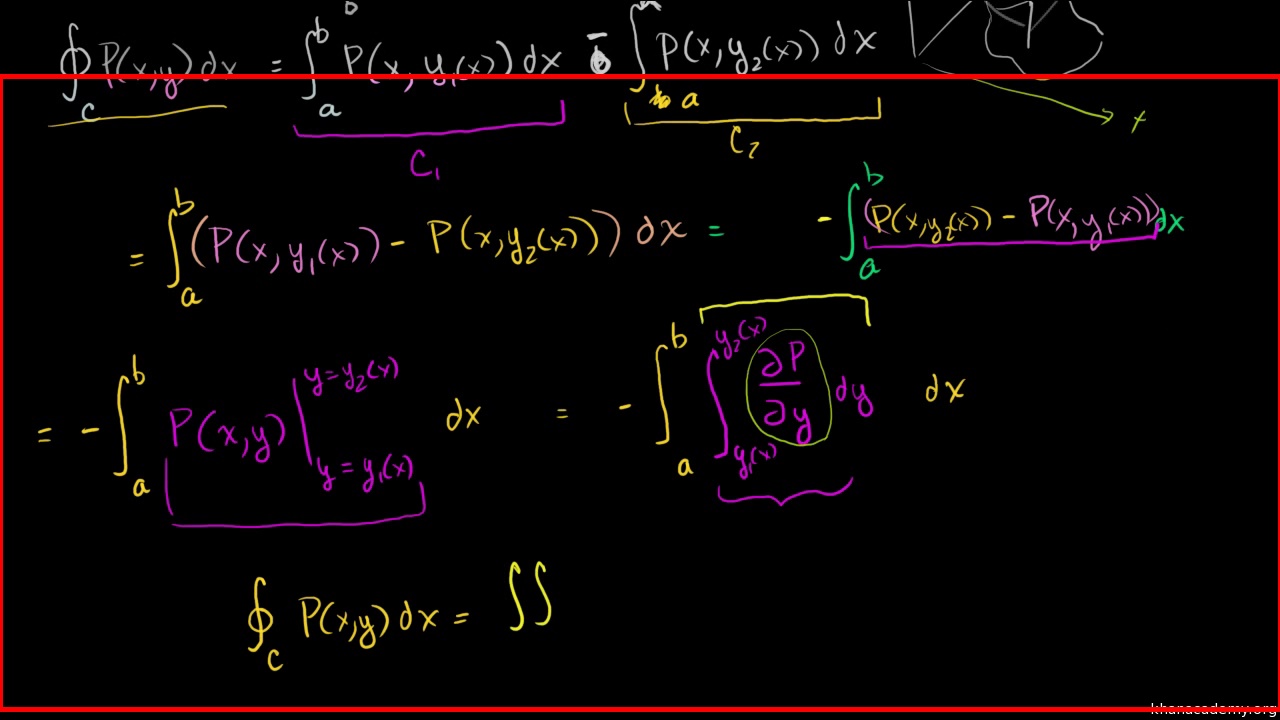 ∮_C P(x,y) dx = ∫_a^b P(x, y₁(x)) dx − ∫_a P(x, y₂(x)) dx
x
C₁ C₂
= ∫_a^b (P(x, y₁(x)) − P(x, y₂(x))) dx = − ∫_a^b (P(x, y₂(x)) − P(x, y₁(x))) dx
= − ∫_a^b P(x,y) |_{y = y₁(x)}^{y = y₂(x)} dx = − ∫_a^b ∫_{y₁(x)}^{y₂(x)} ∂P/∂y dy dx
∮_C P(x,y) dx = ∬
khanacademy.org